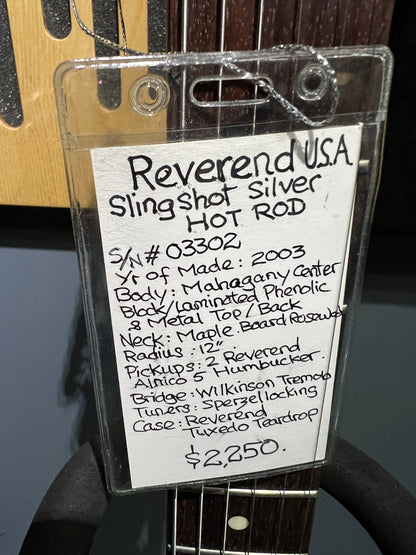 Reverend U.S.A
Slingshot Silver
HOT ROD
S/N# 03302
Yr of Made: 2003
Body: Mahagany Center
Block/Laminated Phenolic
& Metal Top/Back
Neck: Maple. Board Rosewood
Radius: 12"
Pickups: 2 Reverend
Alnico 5 Humbucker.
Bridge: Wilkinson Tremolo
Tuners: Sperzel locking
Case: Reverend
Tuxedo Teardrop
$2,250.